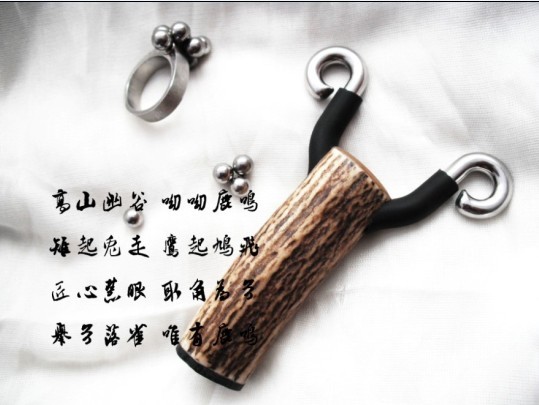 高山幽谷 呦呦鹿鸣
起兔走 鹰起鸠飛
匠心蕙眼 取角为弓
舉弓落雀 唯有鹿鸣